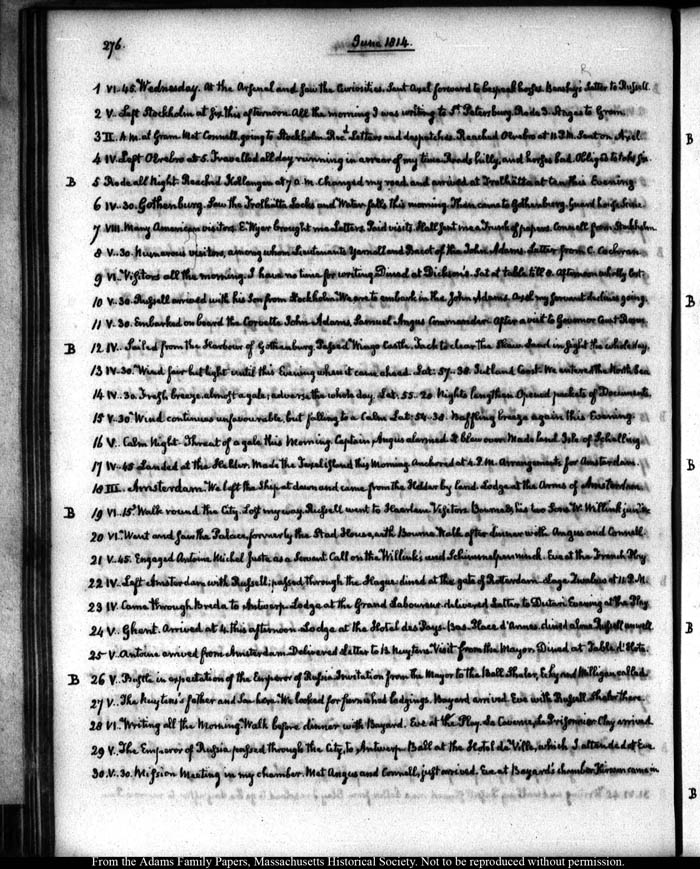 276.
June 1814.
1 VI.45. Wednesday. At the Arsenal and saw the Curiosities. Sent Axel forward to bespeak horses. Letter to Russell.
2 V. Left Stockholm at six this afternoon. All the morning I was writing to St. Petersburg. Rode 3. Stages to Gran.
3 II. A.M. at Gran. Met Connell going to Stockholm. Recd. Letters and despatches. Reached Orebro at 11 P.M. Sent on Axel.
4 IV. Left Orebro at 5. Travelled all day running in arrear of my time. Roads hilly, and horses bad. Oblig'd to take six.
B 5 Rode all Night. Reached at 7 A.M. Changed my road and arrived at Trolhätta at ten this Evening
6 IV.30. Gothenburg. Saw the Trolhätta Locks and Water falls this morning. Then came to Gothenburg.
7 VIII. Many American visitors. E. Wyer brought me Letters. Paid visits. Hall sent me a Trunk of papers. Connell from Stockholm
8 V.30. Numerous visitors, among whom Lieutenants Yarnall and of the John Adams. Letter from C. Cochran
9 VI. Visitors all the morning. I have no time for writing. Dined at Dickson's. Sat at table till 8. Afternoon wholly lost.
10 V.30. Russell arrived with his Son from Stockholm. We are to embark in the John Adams. Axel my Servant declines going.
11 V.30. Embarked on board the Corvette John Adams, Samuel Angus Commander. After a visit to Governor Count Rosen
B 12 IV. Sailed from the Harbour of Gothenburg. Passed Wingo Castle. Tack to clear the Skaw. Land in sight the whole day.
13 IV.30. Wind fair but light until this Evening when it came ahead. Lat. 57-38. Jutland Coast. We enter the North Sea
14 IV.30. Fresh breeze almost a gale; adverse the whole day. Lat. 55-20. Nights lengthen. Opened packets of Documents.
15 V.30. Wind continues unfavourable, but falling to a Calm. Lat. 54-30. Baffling breeze again this Evening.
16 V. Calm Night. Threat of a gale this Morning. Captain Angus alarmed. It blew over. Made land. Isle of Schelling.
17 IV.45 Landed at the Helder. Made the Texel island this Morning. Anchored at 4. P.M. Arrangements for Amsterdam.
18 III. Amsterdam. We left the Ship at dawn and came from the Helder by land. Lodge at the Arms of Amsterdam
B 19 VI.15. Walk round the City. Lost my way. Russell went to Haarlem. Visitors Bourne & his two Sons. W. Willink junr.
20 VI. Went and saw the Palace, formerly the Stad House, with Bourne. Walk after dinner with Angus and Connell.
21 V.45. Engaged Antoine Michel Juste as a Servant. Call on the Willink's and Schimmelpenninck. Eve at the French Play
22 IV. Left Amsterdam with Russell; passed through the Hague; dined at the gate of Rotterdam. at 11 P.M.
23 IV. Came through Breda to Antwerp. Lodge at the Grand Laboureur. delivered Letter to Evening at the Play
24 V. Ghent. Arrived at 4. this afternoon. Lodge at the Hotel des Pays-Bas. Place d'Armes. dined alone Russell unwell
25 V. Antoine arrived from Amsterdam. Delivered Letter to Visit from the Mayor. Dined at Table d'Hote.
B 26 V. Bustle in expectation of the Emperor of Russia. Invitation from the Mayor to the Ball. Shaler, and Milligan called
27 V. The father and Son here. We looked for furnished lodgings. Bayard arrived. Eve with Russell. Shaler there.
28 VI. Writing all the Morning. Walk before dinner with Bayard. Eve at the Play. La Caverne, Le Prisonnier. Clay arrived
29 V. The Emperor of Russia passed through the City, to Antwerp. Ball at the Hotel de Ville, which I attended at Eve
30 V.30. Mission Meeting in my chamber. Met Angus and Connell, just arrived. Eve at Bayard's chamber came in
B
B
B
B
B
From the Adams Family Papers, Massachusetts Historical Society. Not to be reproduced without permission.